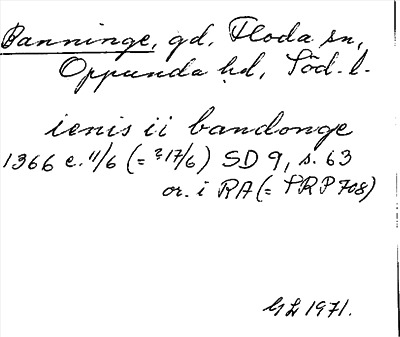 Banninge, gd, Floda sn,
Oppunda hd, Söd. l.
ienis ii bandonge
1366 e. 11/6 (= ? 17/6) SD 9, s. 63
or. i RA (= SRP 708)
GL 1971.